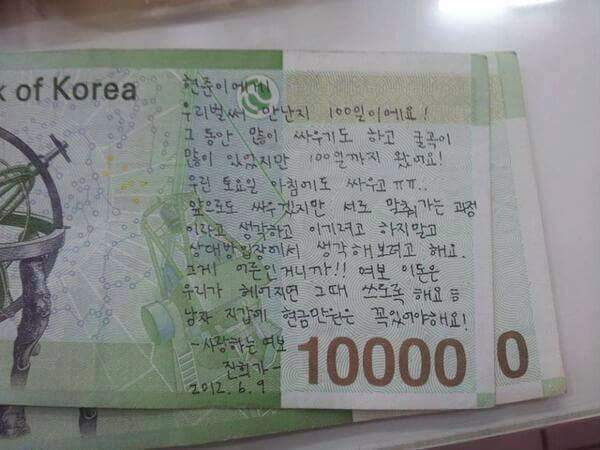 k of Korea
현준이에게
우리벌써 만난지 100일이에요!
그동안 많이 싸우기도 하고 굴곡이
많이 있었지만 100일까지 왔어요!
우린 토요일 아침에도 싸우고 ㅠㅠ..
앞으로도 싸우겠지만 서로 맞춰가는 과정
이라고 생각하고 이기려고 하지말고
상대방입장에서 생각해보려고 해요.
그게 어른인거니까!! 여보 이돈은
우리가 헤어지면 그때 쓰도록 해요 흥
남자 지갑에 현금만원은 꼭있어야해요!
-사랑하는 여보
진희가-
2012. 6. 9
10000
0